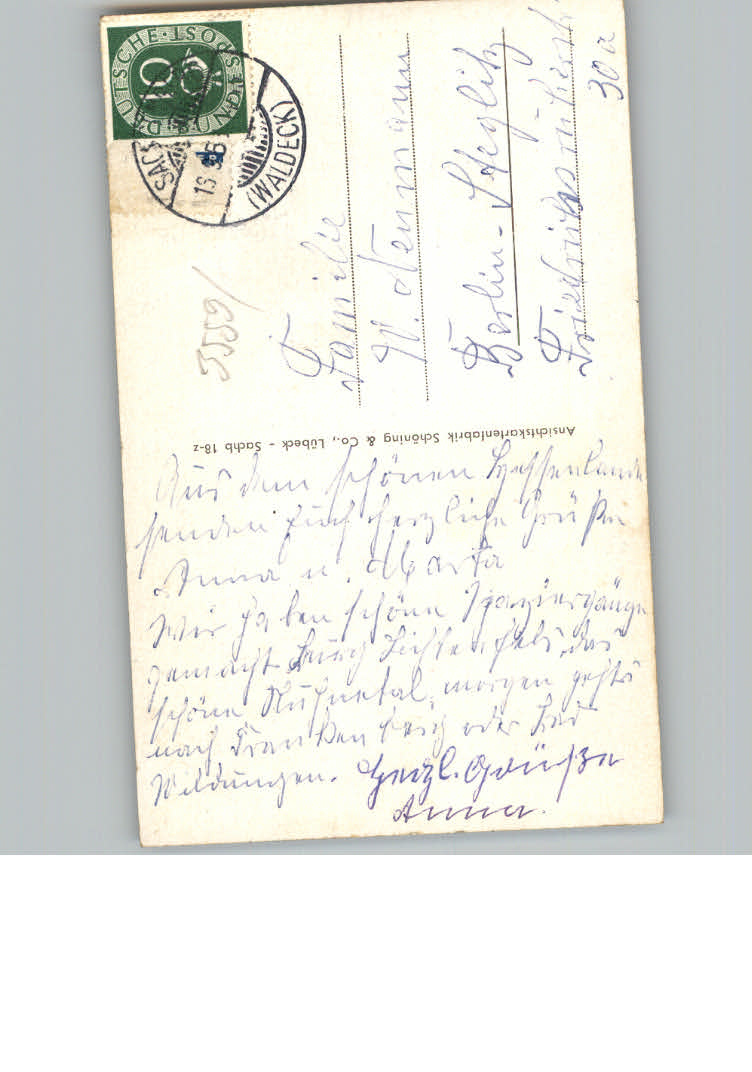 DEUTSCHE · BUNDESPOST
10
(WALDECK)
Familie
W. Neumann
Berlin-Steglitz
30a
3559/
Ansichtskartenfabrik Schöning & Co., Lübeck - Sachb 18-z
Aus dem schönen Hessenlande
senden Euch herzliche Grüße
Anna u. Marta
Wir haben schöne Spaziergänge
gemacht Burg Lichtenfels, das
schöne Ruhnetal, morgen gehts
nach Frankenberg oder Bad
Wildungen. Herzl. Grüße
Anna.